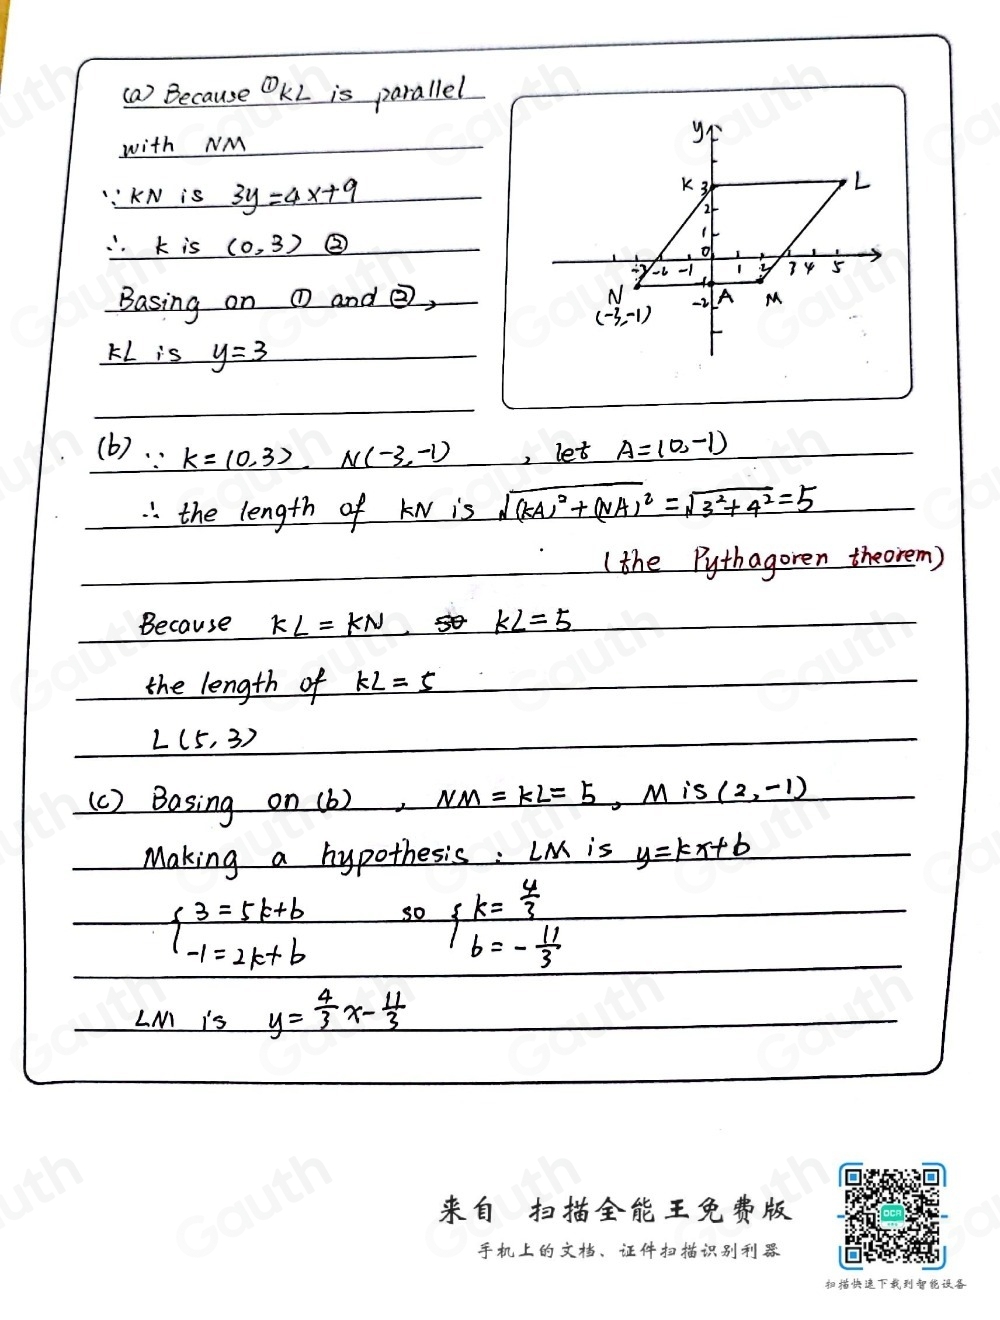 (a) Because ①KL is parallel
with NM
∵ KN is 3y=4x+9
∴ K is (0,3) ②
Basing on ① and ②,
KL is y=3
y
K 3
L
2
1
0
-3 -2 -1 1 2 3 4 5
N
-2
A
M
(-3,-1)
(b) ∵ K=(0,3). N(-3,-1) , let A=(0,-1)
∴ the length of KN is √((KA)²+(NA)²) = √(3²+4²) = 5
(the Pythagoren theorem)
Because KL = KN. so KL=5
the length of KL = 5
L(5,3)
(c) Basing on (b) , NM = KL= 5, M is (2,-1)
Making a hypothesis: LM is y=kx+b
{ 3 = 5k+b so { k= 4/3
-1 = 2k+b b = - 11/3
LM is y= 4/3 x - 11/3
来自 扫描全能王免费版
手机上的文档、证件扫描识别利器
扫描快速下载到智能设备
OCR
Gauth